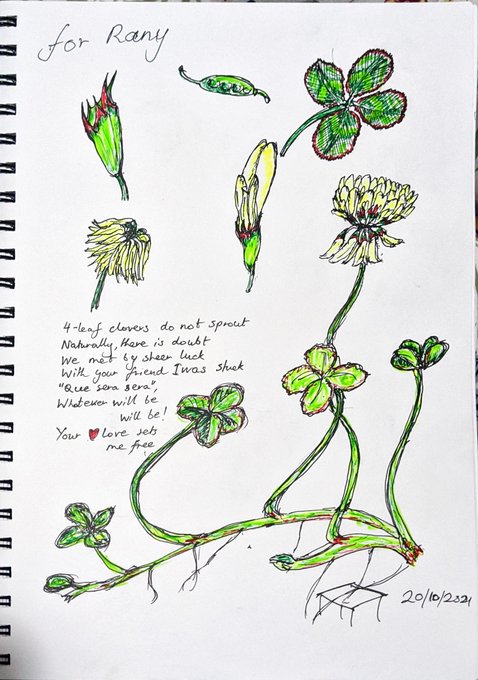 for Rany
4-leaf clovers do not sprout
Naturally, there is doubt
We met by sheer luck
With your friend I was stuck
"Que sera sera",
Whatever will be
will be!
Your ❤ love sets
me free
20/10/2021